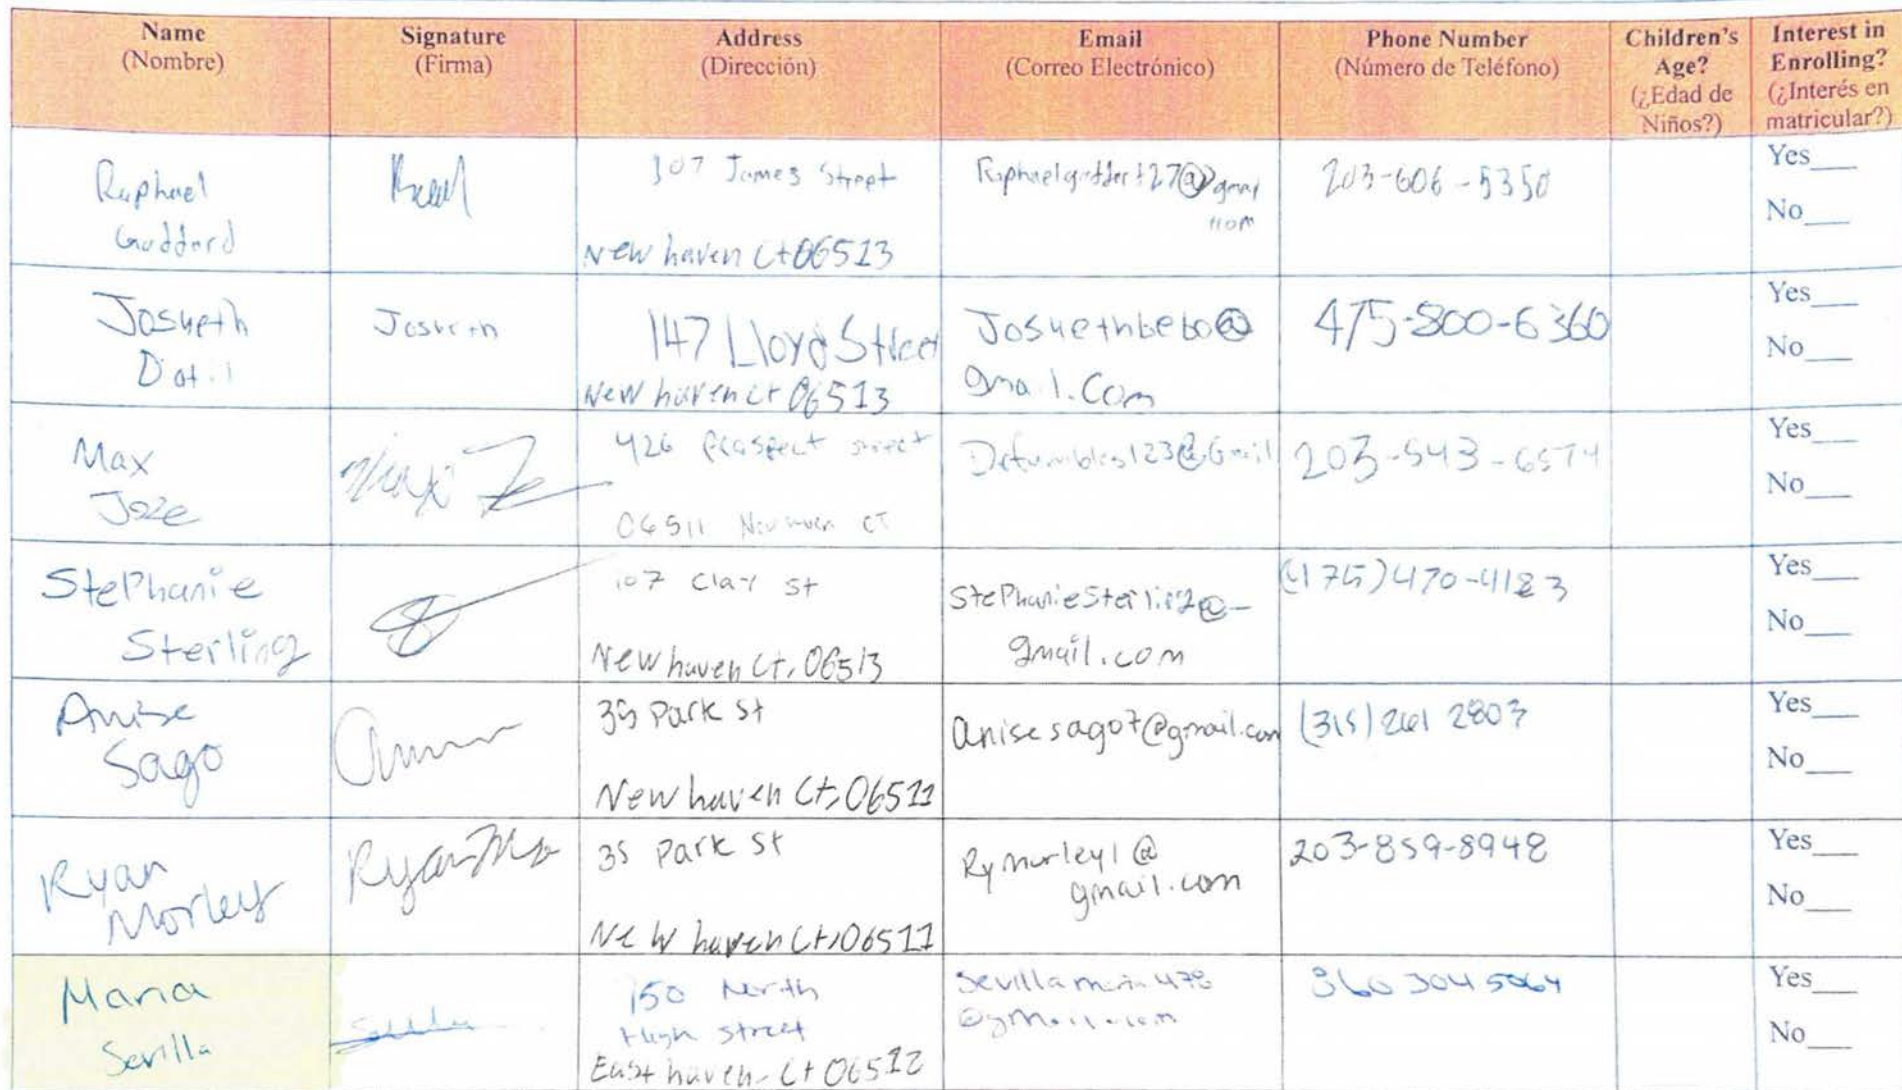 Name
(Nombre)
Signature
(Firma)
Address
(Dirección)
Email
(Correo Electrónico)
Phone Number
(Número de Teléfono)
Children's
Age?
(¿Edad de
Niños?)
Interest in
Enrolling?
(¿Interés en
matricular?)
Raphael
Goddard
107 James Street
New haven Ct 06513
203-606-5350
Yes___
No___
Josueth
Datil
Josueth
147 Lloyd Street
New haven Ct 06513
Josuethbebo@
gmail.com
475-800-6360
Yes___
No___
Max
Joze
Max
426 Prospect street
06511 CT
203-543-6574
Yes___
No___
StePhanie
Sterling
107 Clay St
New haven Ct, 06513
gmail.com
(475)470-4183
Yes___
No___
Anise
Sago
35 Park St
New haven Ct, 06511
anisesago7@gmail.com
(315) 261 2803
Yes___
No___
Ryan
Morley
Ryan
35 Park St
New haven Ct, 06511
Rymorley1@
gmail.com
203-859-8948
Yes___
No___
Maria
Sevilla
150 North
High street
East haven Ct 06512
Sevillamaria478
@gmail.com
360 304 5064
Yes___
No___